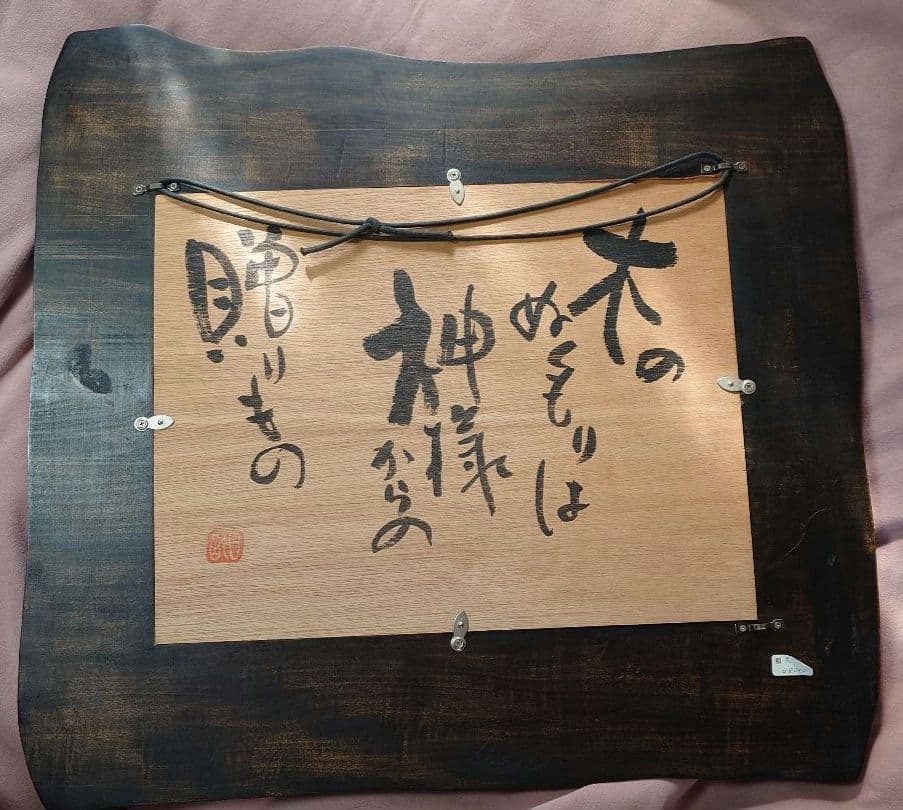 木の
ぬくもりは
神様
からの
贈りもの